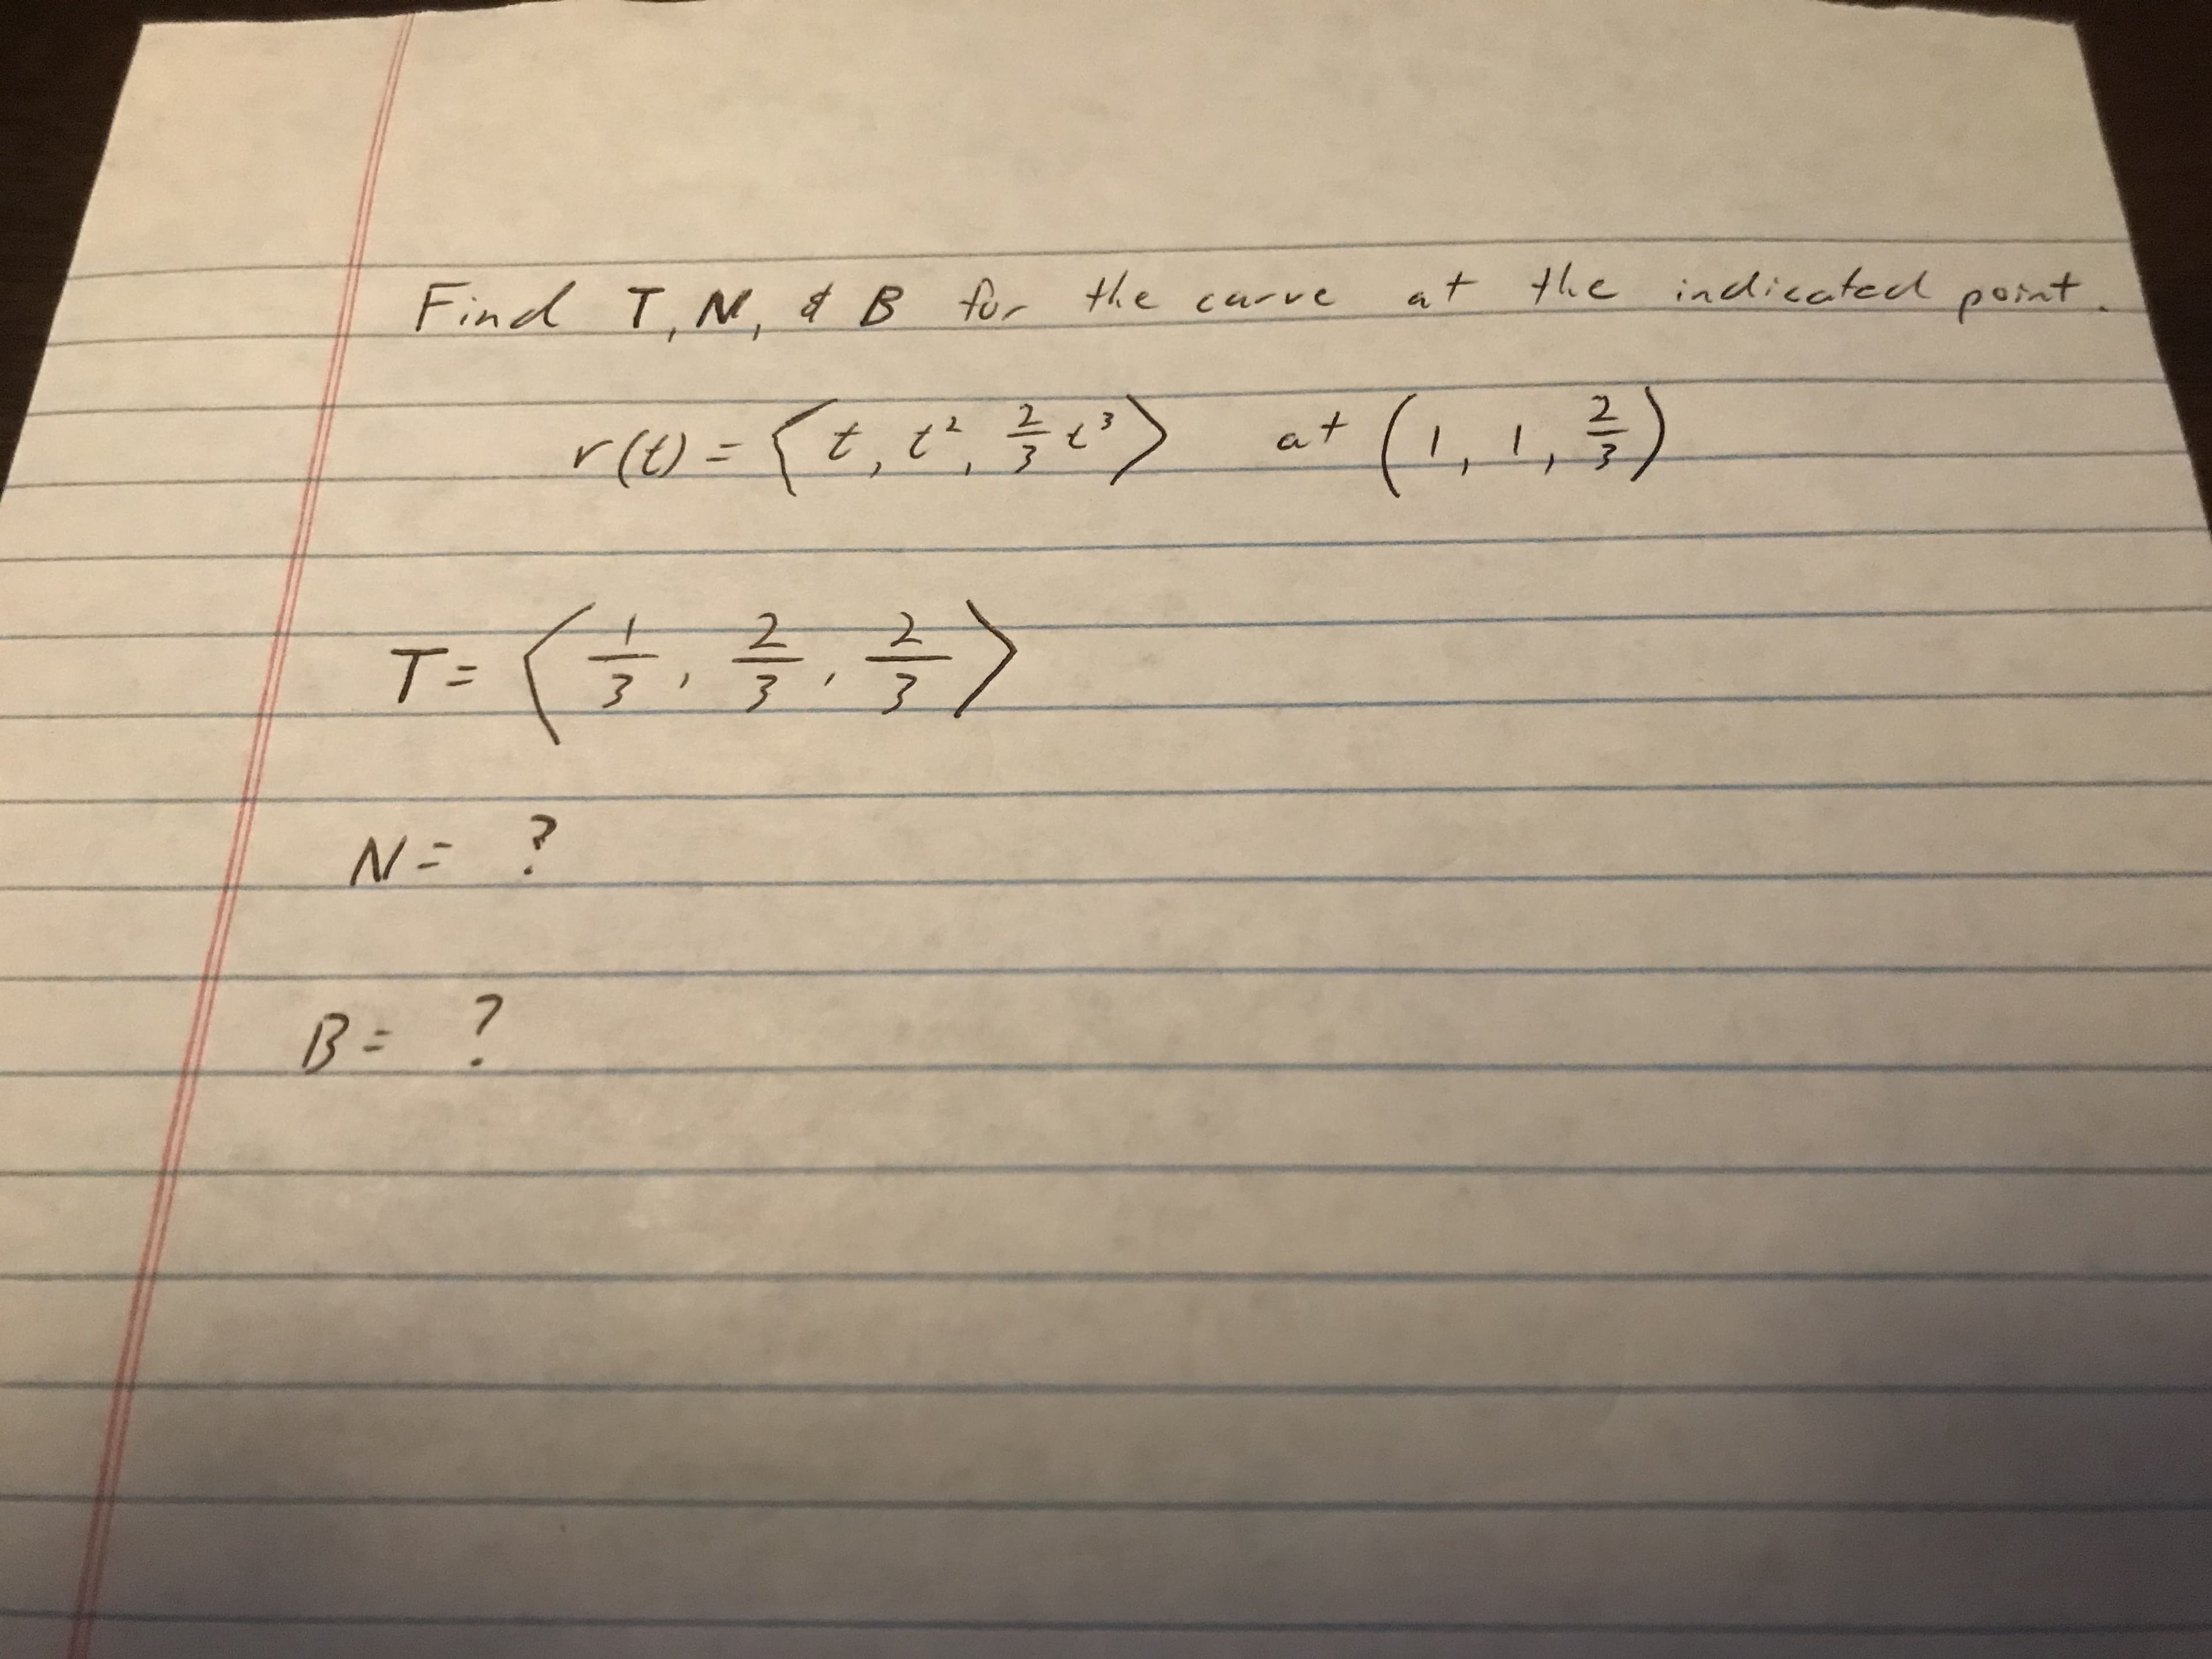 Find T, N, & B for the curve at the indicated point.
r(t) = ⟨t, t², 2/3 t³⟩ at (1, 1, 2/3)
T = ⟨1/3, 2/3, 2/3⟩
N = ?
B = ?